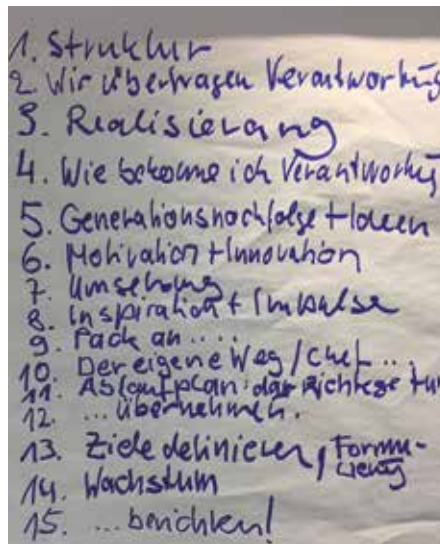 1. Struktur
2. Wir übertragen Verantwortung
3. Realisierung
4. Wie bekomme ich Verantwortung
5. Generationsnachfolge + Ideen
6. Motivation + Innovation
7. Umsetzung
8. Inspiration + Impulse
9. Pack an ....
10. Der eigene Weg / Chef ...
11. Ablaufplan: das Richtige tun
12. ... übernehmen.
13. Ziele definieren, Formu-
lierung
14. Wachstum
15. ... berichten!